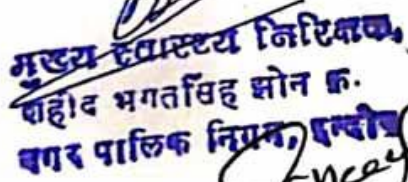 मुख्य स्वास्थ्य निरिक्षक,
शहीद भगतसिंह झोन क्र.
नगर पालिक निगम, इन्दौर